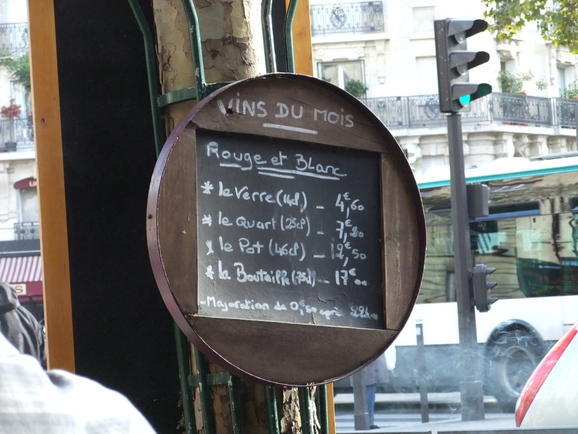 VINS DU MOIS
Rouge et Blanc
* le Verre (14cl) _ 4,€60
* le Quart (25cl) _ 7,€20
* le Pot (46cl) - 12,€50
* la Bouteille (75cl) _ 17€00
- Majoration de 0,€50 après 22h00